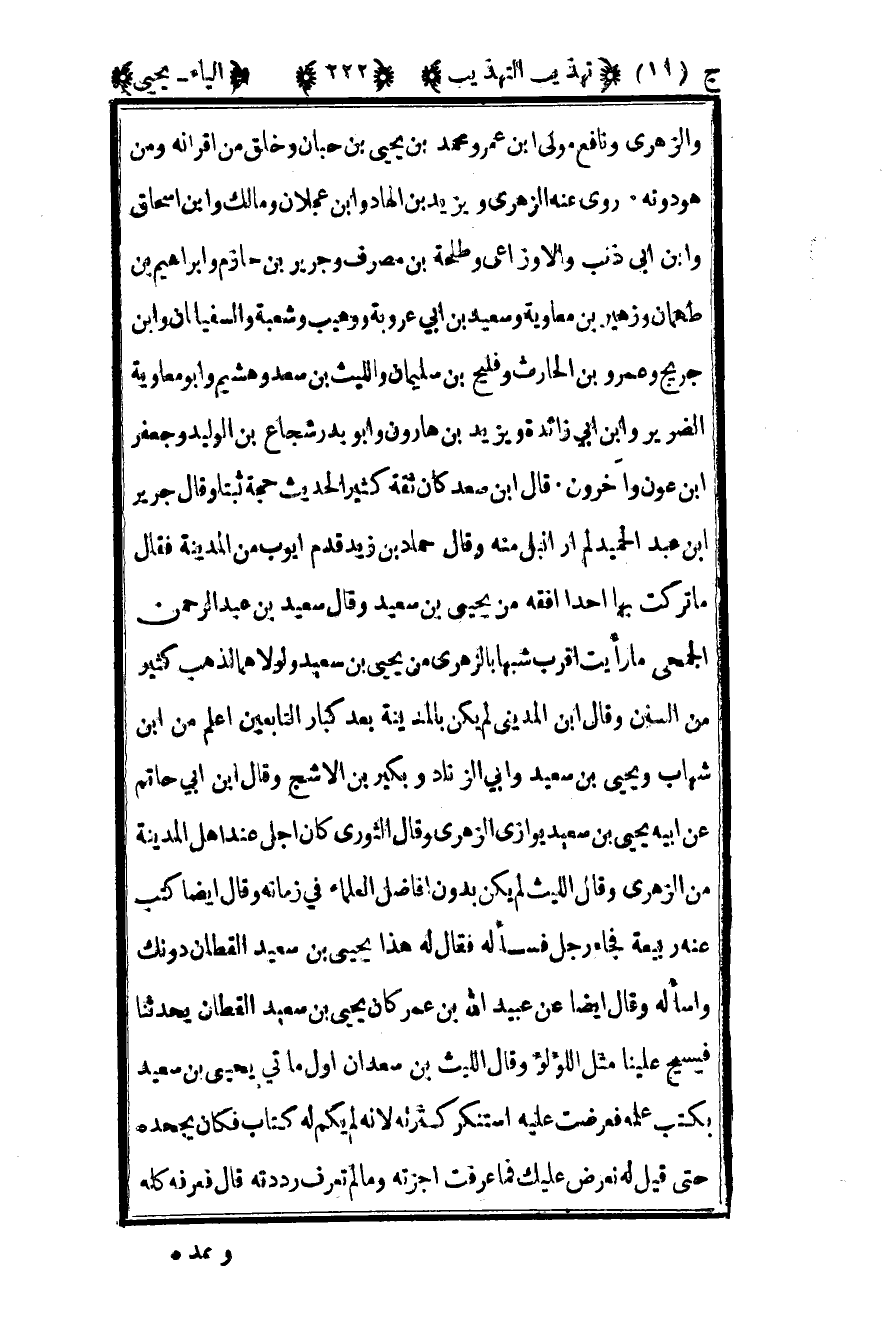 ج (١٩) تهذيب التهذيب ٢٢٢ الياء - يحيى
والزهرى ونافع مولى ابن عمرو محمد بن يحيى بن حبان وخلق من اقرانه ومن
هودونه · روى عنه الزهرى ويزيد بن الهاد وابن عجلان ومالك وابن اسحاق
وابن ابى ذئب والاوزاعى وطلحة بن مصرف وجرير بن حازم وابراهيم بن
طهمان وزهير بن معاوية وسعيد بن ابي عروبة ووهيب وشعبة والسفيانان وابن
جريج وعمرو بن الحارث وفليح بن سليمان والليث بن سعد وهشيم وابو معاوية
الضرير وابن ابي زائدة ويزيد بن هارون وابو بدر شجاع بن الوليد وجعفر
ابن عون وآخرون · قال ابن سعد كان ثقة كثير الحديث حجة ثبتا وقال جرير
ابن عبد الحميد لم ار انبل منه وقال حماد بن زيد قدم ايوب من المدينة فقال
ماتركت بها احدا افقه من يحيى بن سعيد وقال سعيد بن عبد الرحمن
الجمحى مارأيت اقرب شبها بالزهرى من يحيى بن سعيد ولولاهما لذهب كثير
من السنن وقال ابن المدينى لم يكن بالمدينة بعد كبار التابعين اعلم من ابن
شهاب ويحيى بن سعيد وابي الزناد وبكير بن الاشج وقال ابن ابي حاتم
عن ابيه يحيى بن سعيد يوازى الزهرى وقال الثورى كان اجل عند اهل المدينة
من الزهرى وقال الليث لم يكن بدون افاضل العلماء في زمانه وقال ايضا كتب
عنه ربيعة فجاء رجل فسأله فقال له هذا يحيى بن سعيد القطان دونك
واسأله وقال ايضا عن عبيد الله بن عمر كان يحيى بن سعيد القطان يحدثنا
فيسيح علينا مثل اللؤلؤ وقال الليث بن سعد ان اول ماتي يحيى بن سعيد
بكتب علمه فعرضت عليه استنكر كثرته لانه لم يكم له كتاب فكان يجحده
حتى قيل له نعرض عليك فما عرفت اجزته ومالم تعرف رددته قال فعرفه كله
وعده